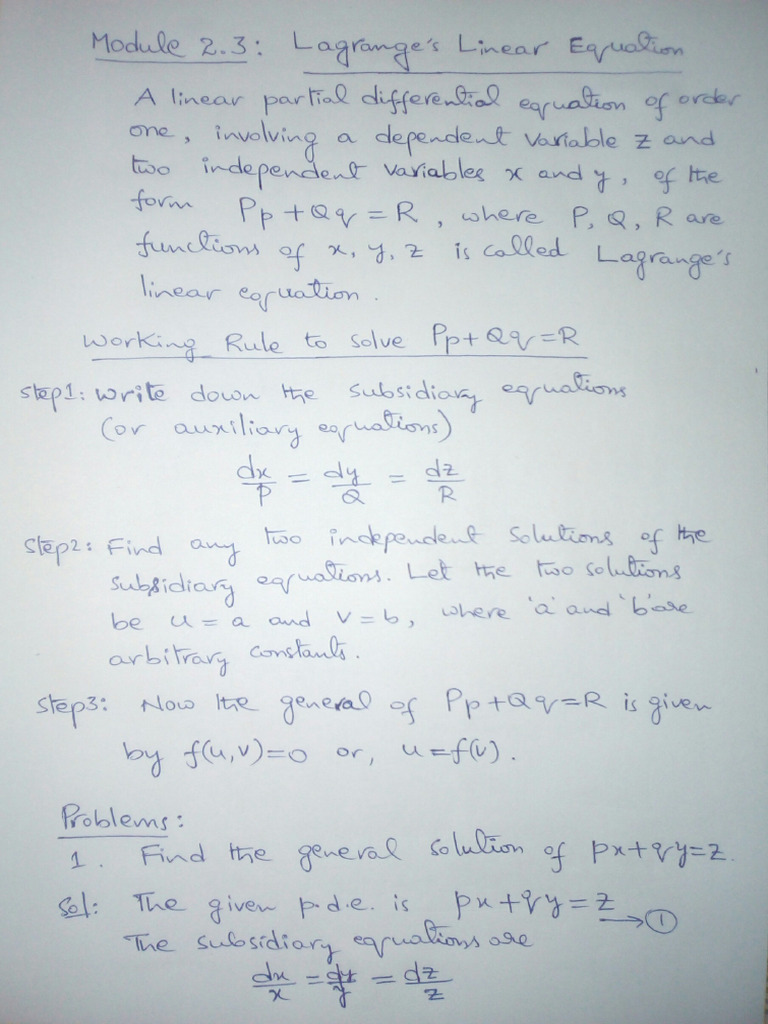 Module 2.3: Lagrange's Linear Equation
A linear partial differential equation of order
one, involving a dependent variable z and
two independent variables x and y, of the
form Pp + Qq = R, where P, Q, R are
functions of x, y, z is called Lagrange's
linear equation.
Working Rule to solve Pp + Qq = R
Step1: Write down the subsidiary equations
(or auxiliary equations)
dx/P = dy/Q = dz/R
Step2: Find any two independent solutions of the
subsidiary equations. Let the two solutions
be u = a and v = b, where 'a' and 'b' are
arbitrary constants.
Step3: Now the general of Pp + Qq = R is given
by f(u,v)=0 or, u = f(v).
Problems:
1. Find the general solution of px+qy=z.
Sol: The given p.d.e. is px+qy=z → ①
The subsidiary equations are
dx/x = dy/y = dz/z